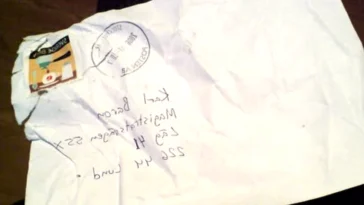 Karl Baron
Magistratsvägen 55 X
Läg 41
226 44 Lund